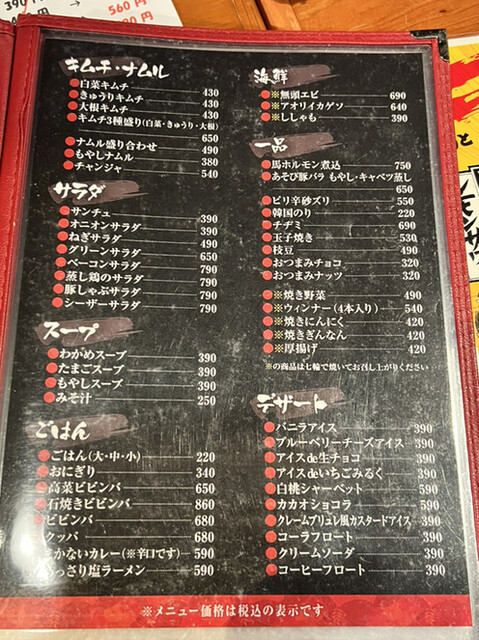 390円
560円
キムチ・ナムル
白菜キムチ 430
きゅうりキムチ 430
大根キムチ 430
キムチ3種盛り(白菜・きゅうり・大根) 650
ナムル盛り合わせ 490
もやしナムル 380
チャンジャ 540
サラダ
サンチュ 390
オニオンサラダ 390
ねぎサラダ 490
グリーンサラダ 650
ベーコンサラダ 790
蒸し鶏のサラダ 790
豚しゃぶサラダ 790
シーザーサラダ 790
スープ
わかめスープ 390
たまごスープ 390
もやしスープ 390
みそ汁 250
ごはん
ごはん(大・中・小) 220
おにぎり 340
高菜ビビンバ 650
石焼きビビンバ 860
ビビンバ 680
クッパ 680
かないカレー(※辛口です) 590
さり塩ラーメン 590
海鮮
※無頭エビ 690
※アオリイカゲソ 640
※ししゃも 390
一品
馬ホルモン煮込 750
あそび豚バラ もやし・キャベツ蒸し 650
ピリ辛砂ズリ 550
韓国のり 220
チヂミ 390
玉子焼き 530
枝豆 390
おつまみチョコ 320
おつまみナッツ 320
※焼き野菜 490
※ウィンナー(4本入り) 540
※焼きにんにく 420
※焼きぎんなん 420
※厚揚げ 420
※の商品は七輪で焼いてお召し上がりください
デザート
バニラアイス 390
ブルーベリーチーズアイス 390
アイスde生チョコ 390
アイスdeいちごみるく 390
白桃シャーベット 590
カカオショコラ 590
クレームブリュレ風カスタードアイス 390
コーラフロート 390
クリームソーダ 390
コーヒーフロート 390
※メニュー価格は税込の表示です